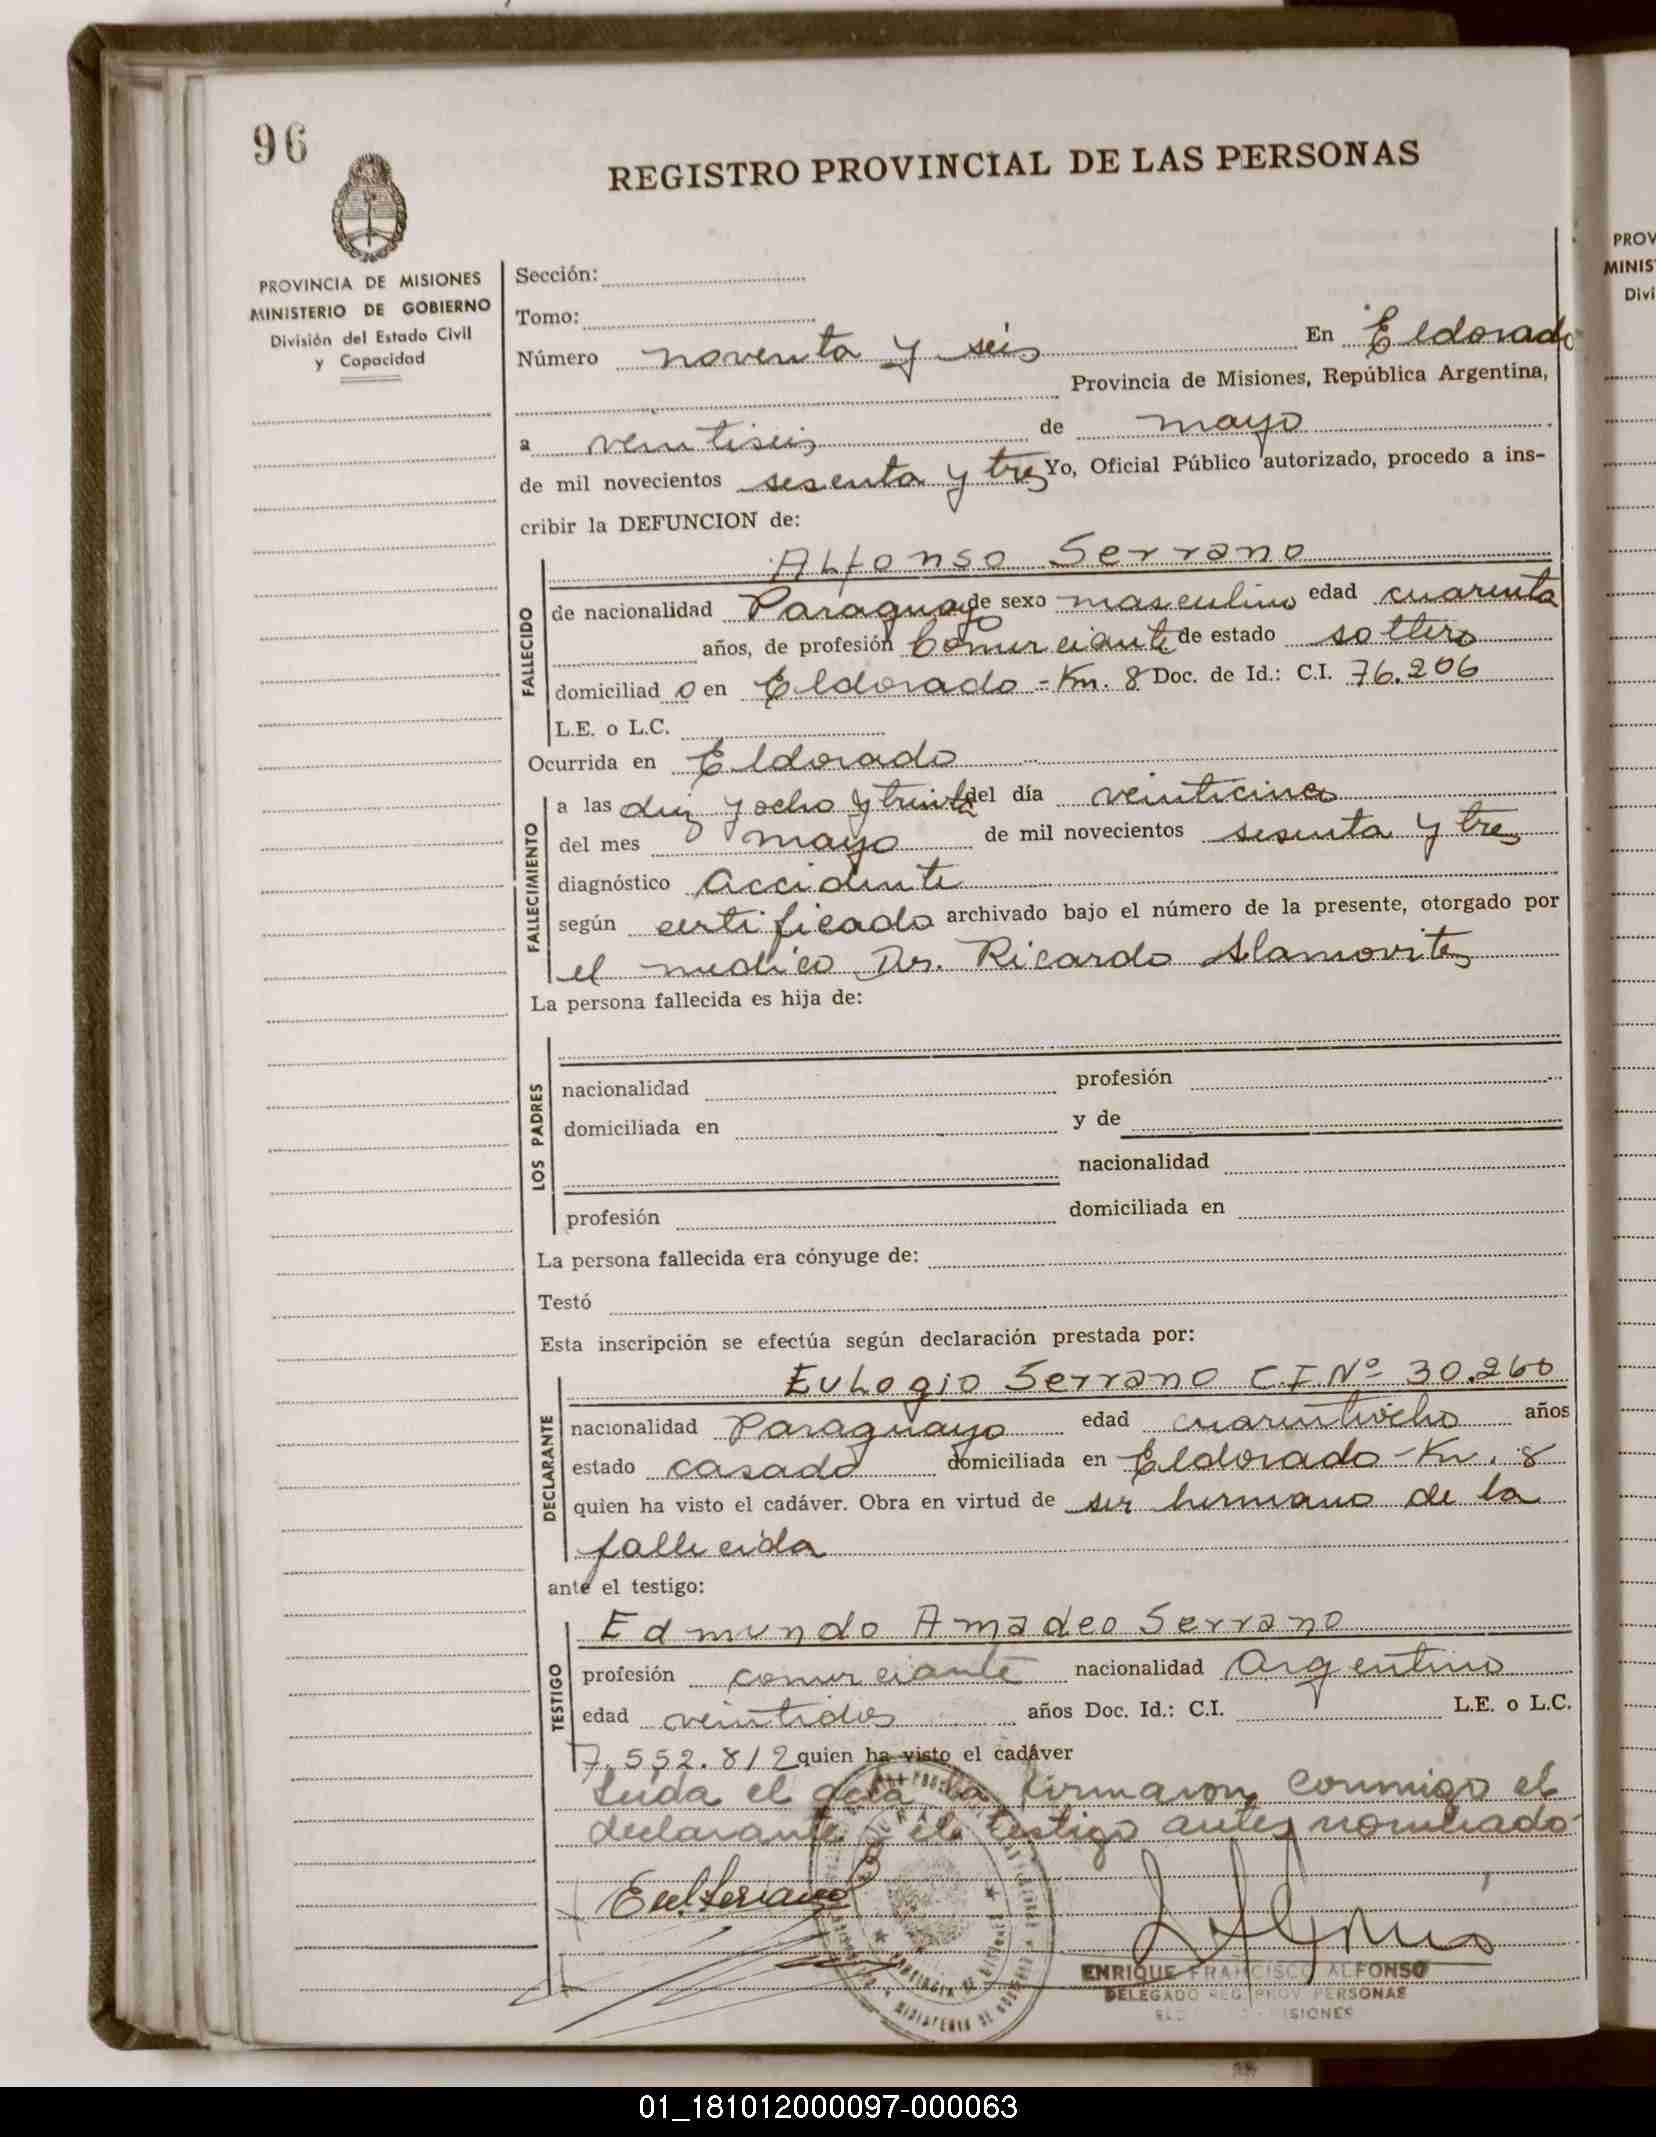 96
REGISTRO PROVINCIAL DE LAS PERSONAS
PROVINCIA DE MISIONES
MINISTERIO DE GOBIERNO
División del Estado Civil
y Capacidad
Sección:
Tomo:
Número noventa y seis En Eldorado
Provincia de Misiones, República Argentina,
a veintiseis de mayo
de mil novecientos sesenta y tres Yo, Oficial Público autorizado, procedo a ins-
cribir la DEFUNCION de:
Alfonso Serrano
FALLECIDO
de nacionalidad Paraguayo de sexo masculino edad cuarenta
años, de profesión Comerciante de estado soltero
domiciliad o en Eldorado - Km. 8 Doc. de Id.: C.I. 76.206
L.E. o L.C.
Ocurrida en Eldorado
FALLECIMIENTO
a las diez y ocho y treinta del día veinticinco
del mes mayo de mil novecientos sesenta y tres
diagnóstico accidente
según certificado archivado bajo el número de la presente, otorgado por
el medico Dr. Ricardo
La persona fallecida es hija de:
LOS PADRES
nacionalidad profesión
domiciliada en y de
nacionalidad
profesión domiciliada en
La persona fallecida era cónyuge de:
Testó
Esta inscripción se efectúa según declaración prestada por:
DECLARANTE
Eulogio Serrano C.I. Nº 30.260
nacionalidad Paraguayo edad cuarentiocho años
estado casado domiciliada en Eldorado - Km. 8
quien ha visto el cadáver. Obra en virtud de ser hermano de la
fallecida
ante el testigo:
TESTIGO
Edmundo Amadeo Serrano
profesión comerciante nacionalidad Argentino
edad veintidos años Doc. Id.: C.I. L.E. o L.C.
7.552.812 quien ha visto el cadáver
Leida el acta la firmaron conmigo el
declarante y el testigo antes nombrado
ENRIQUE FRANCISCO ALFONSO
DELEGADO REG. PROV. PERSONAS
PROV
MINIS
Divi
01_181012000097-000063